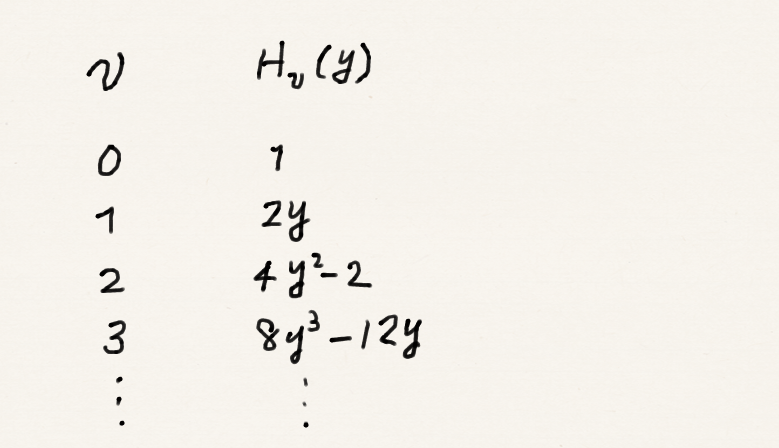 v H_v(y)
0 1
1 2y
2 4y²-2
3 8y³-12y
⋮ ⋮